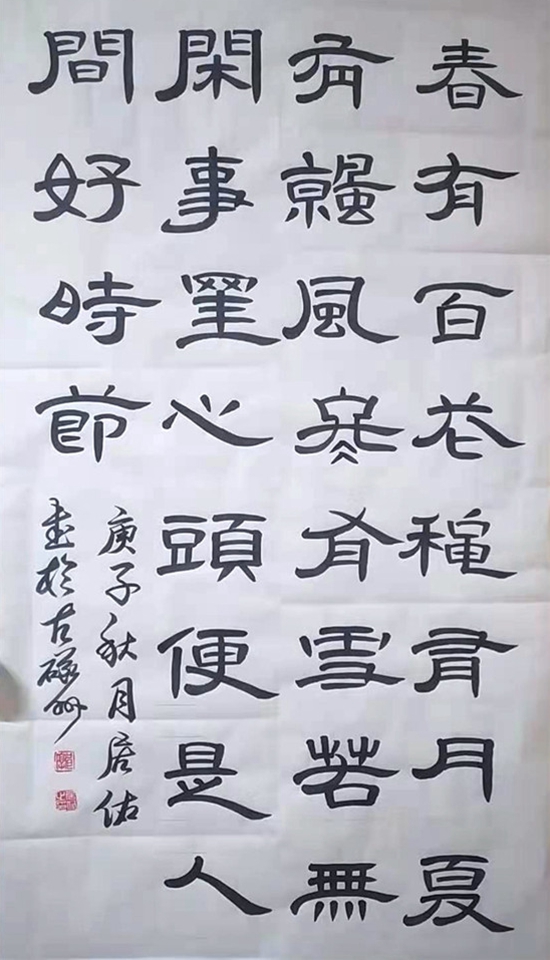 春有百花穐有月夏
有風寒有雪若無
閑事罣心頭便是人
間好時節
庚子秋月佑
書於古磁州